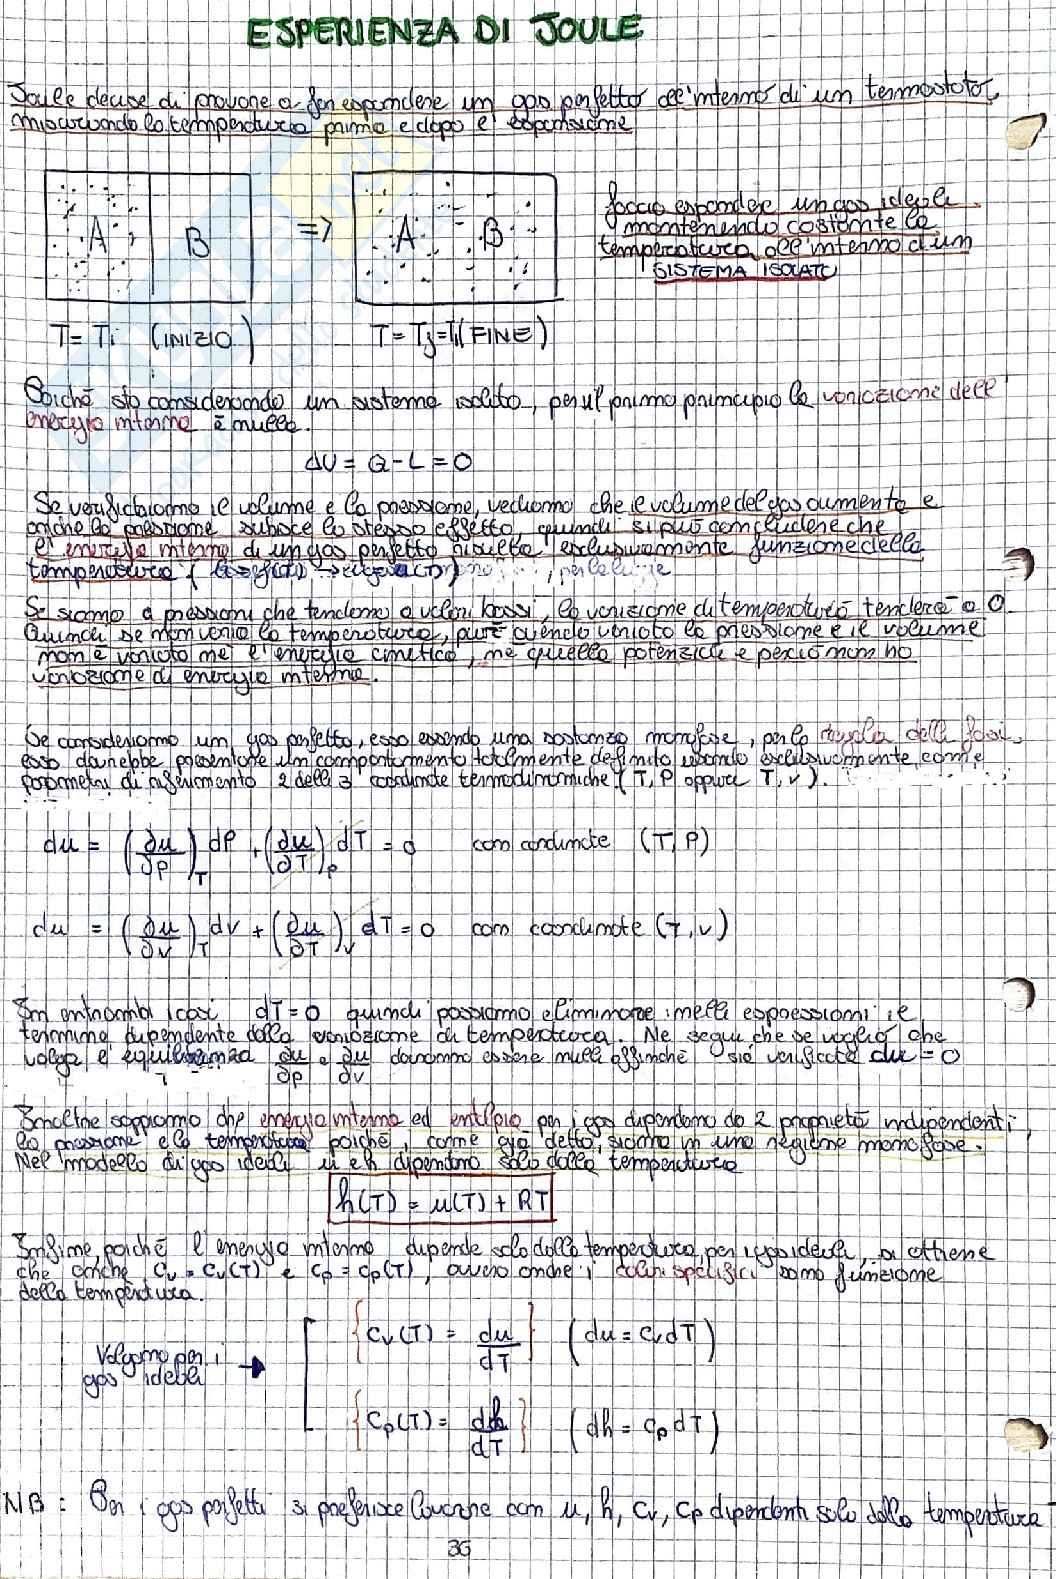 ESPERIENZA DI JOULE
Joule decise di provare a far espandere un gas perfetto all'interno di un termostato,
misurando la temperatura prima e dopo l'espansione
A B => A B
faccio espandere un gas ideale
mantenendo costante la
temperatura all'interno d'un
SISTEMA ISOLATO
T = Ti (INIZIO) T = Tf = Ti (FINE)
Poiché sto considerando un sistema isolato, per il primo principio la variazione dell'
energia interna è nulla.
ΔU = Q - L = 0
Se verifichiamo il volume e la pressione, vediamo che il volume del gas aumenta e
anche la pressione subisce lo stesso effetto, quindi si può concludere che
l'energia interna di un gas perfetto risulta esclusivamente funzione della
temperatura
Se siamo a pressioni che tendono a valori bassi, la variazione di temperatura tenderà a 0.
Quindi se non varia la temperatura, pure avendo variato la pressione e il volume
non è variato né l'energia cinetica, né quella potenziale e perciò non ho
variazione di energia interna.
Se consideriamo un gas perfetto, esso essendo una sostanza monofase, per la regola delle fasi,
esso dovrebbe presentare un comportamento totalmente definito usando esclusivamente, come
parametri di riferimento 2 delle 3 coordinate termodinamiche (T, P oppure T, v).
du = (∂u/∂P)_T dP + (∂u/∂T)_P dT = 0 con coordinate (T, P)
du = (∂u/∂v)_T dv + (∂u/∂T)_v dT = 0 con coordinate (T, v)
In entrambi i casi dT = 0 quindi possiamo eliminare nelle espressioni il
termine dipendente dalla variazione di temperatura. Ne segue che se voglio che
valga l'eguaglianza ∂u/∂p e ∂u/∂v dovranno essere nulli affinché sia verificata du = 0
Inoltre sappiamo che energia interna ed entalpia per i gas dipendono da 2 proprietà indipendenti,
la pressione e la temperatura poiché, come già detto, siamo in una regione monofase.
Nel modello di gas ideali u e h dipendono solo dalla temperatura
h(T) = u(T) + RT
Infine, poiché l'energia interna dipende solo dalla temperatura, per i gas ideali, si ottiene
che anche cv = cv(T) e cp = cp(T), ovvero anche i calori specifici sono funzione
della temperatura.
Valgono per i
gas ideali →
{cv(T) = du/dT} (du = cv dT)
{cp(T) = dh/dT} (dh = cp dT)
NB: Per i gas perfetti si preferisce lavorare con u, h, cv, cp dipendenti solo dalla temperatura
36